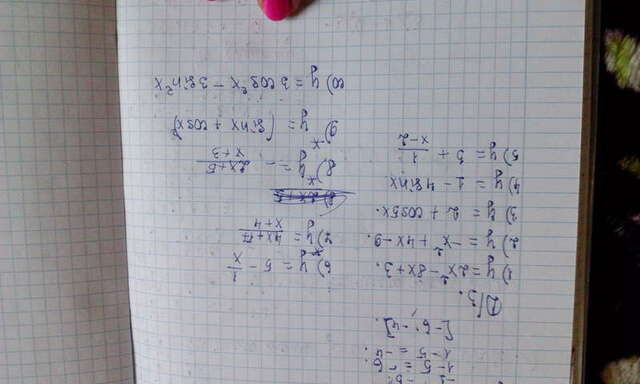 1 - 5 = -6;
1 - 5 = -4;
[-6, -4].
D/З.
1) y = 2x² - 8x + 3.
2) y = -x² + 4x - 9.
3) y = 2 + cos5x.
4) y = 1 - 4sinx
5) y = 3 + 1/x²
6) y = 5 - 1/x
7)* y = (4x+17)/(x+4)
8)* y = - (2x+5)/(x+3)
9)* y = (sinx + cosx)²
10) y = 3cos²x - 3sin²x